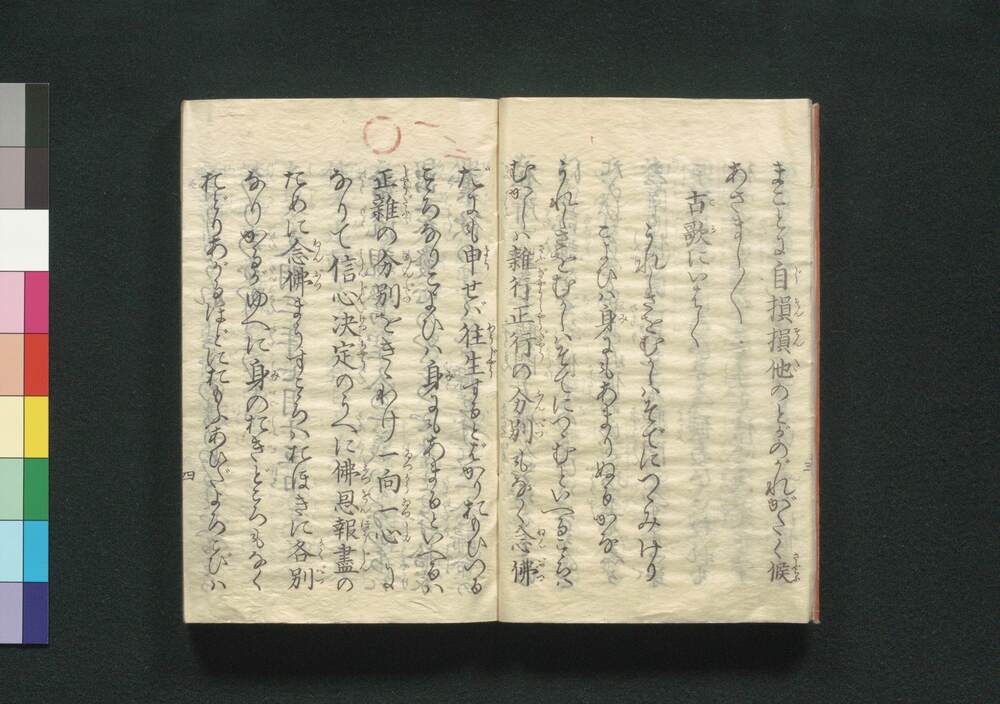 まことに自損損他のとがのがれがたく候
あさまし〳〵
古歌にいはく
うれしさをむかしはそでにつゝみけり
こよひは身にもあまりぬるかな
うれしさをむかしはそでにつゝむといへるこゝろは
むかしは雑行正行の分別もなく念佛
だにも申せば往生するとばかりおもひつる
こゝろなりこよひは身にもあまるといへるは
正雑の分別をきゝわけ一向一心に
なりて信心決定のうへに佛恩報盡の
ために念佛まうすこゝろはおほきに各別
なりかるがゆへに身のおきどころもなく
おどりあがるほどにおもふあひだよろこびは
三
四